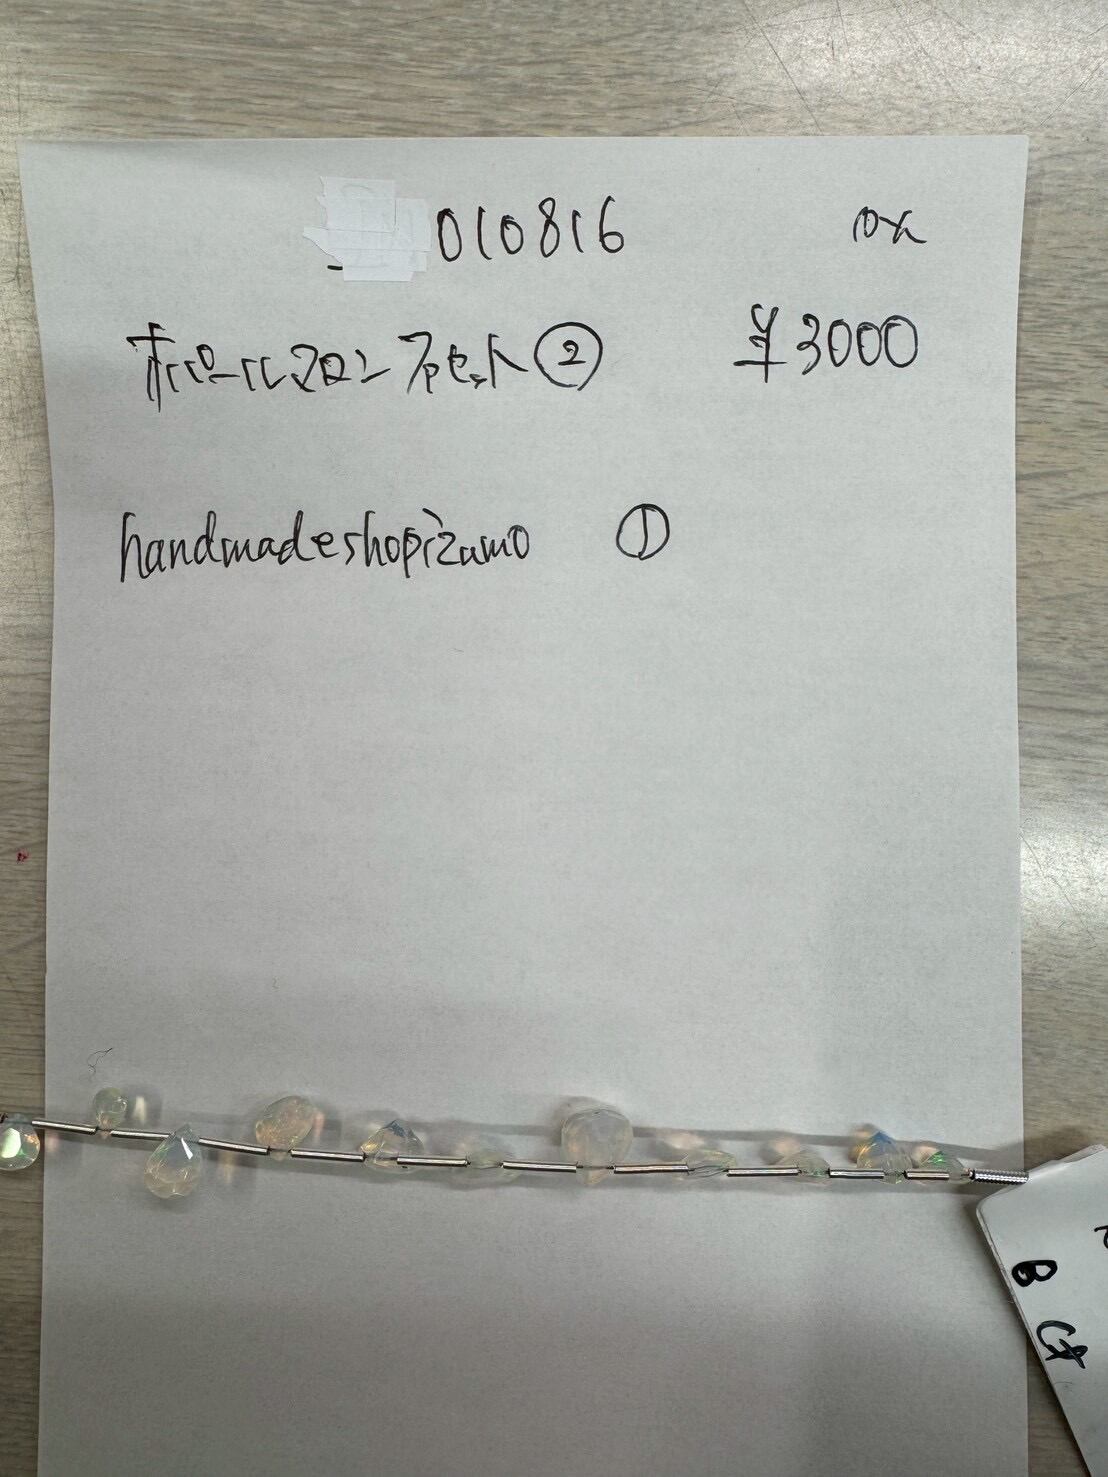 010816
オパールマロンファセット②
¥3000
handmadeshopizumo ①
B
Ct